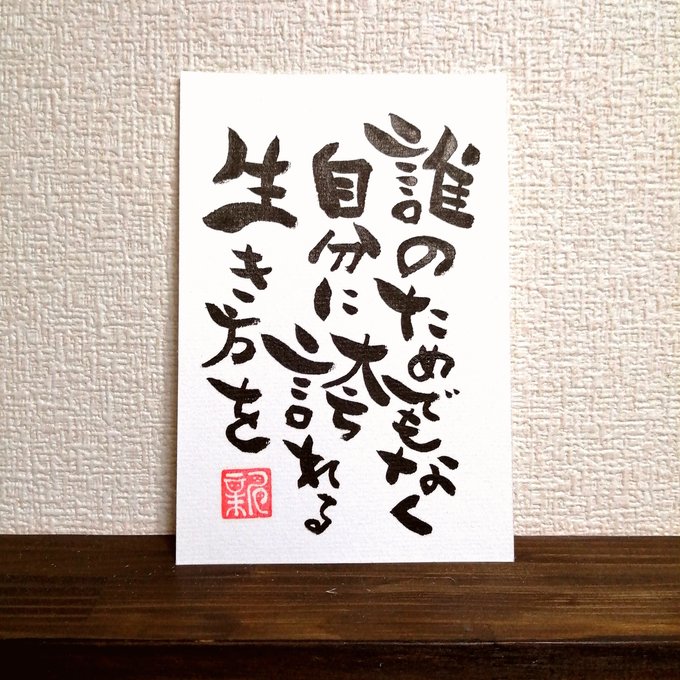 誰のためでもなく
自分に誇れる
生き方を